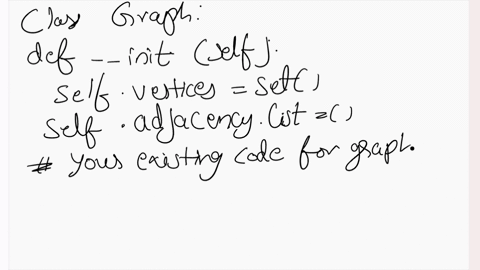 Class Graph:
def __init (self):
self.vertices = set()
self.adjacency.list =()
# your existing code for graph.